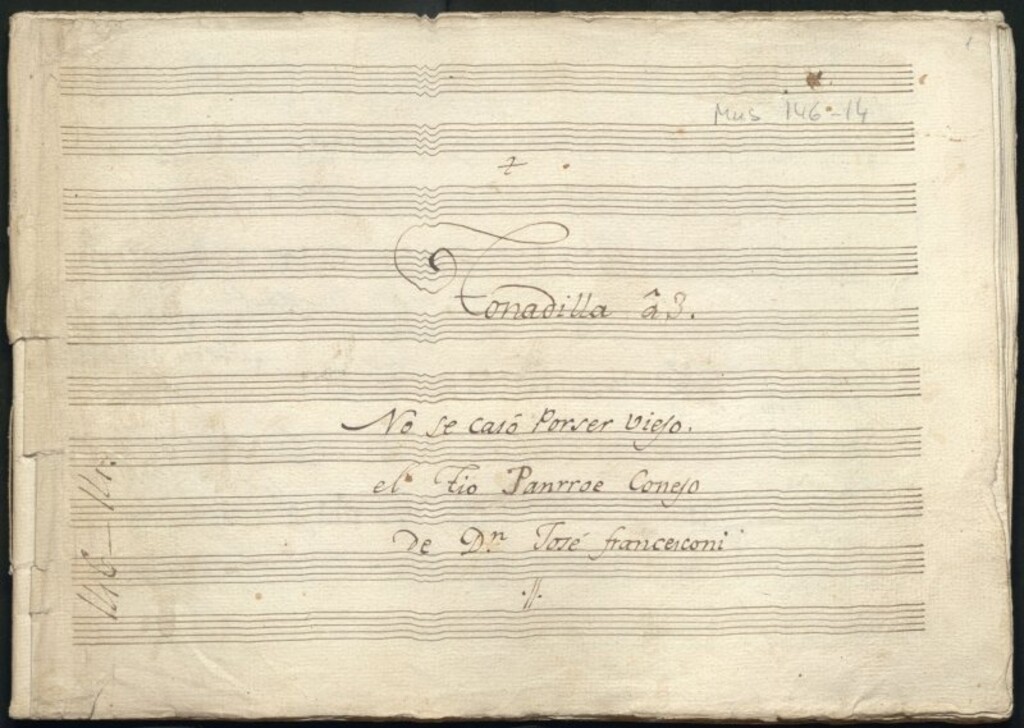 Mus 146-14
Tonadilla â 3.
No se casó Porser viejo.
el Tio Panrroe Conejo
de Dn José francesconi
146-14.